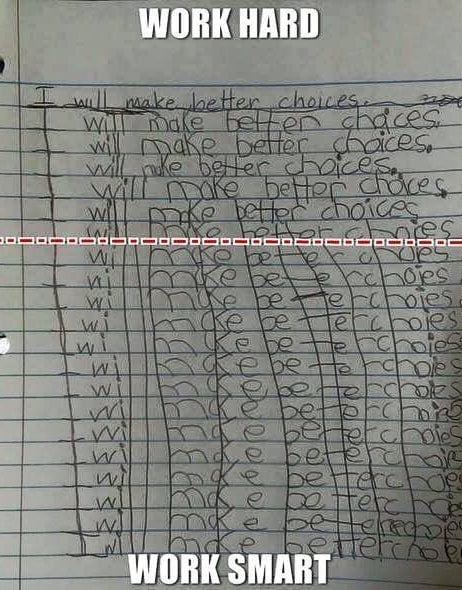 WORK HARD
I will make better choices.
will make better choices.
will make better choices.
will make better choices.
will make better choices
will make better choices
will make better choices
will make better choies
will make better choies
will make better choies
will make better choies
will make better choies
will make better choies
will make better choies
will make better choies
will make better choies
will make better choies
will make better choies
will make better choies
will make better
will make better
WORK SMART